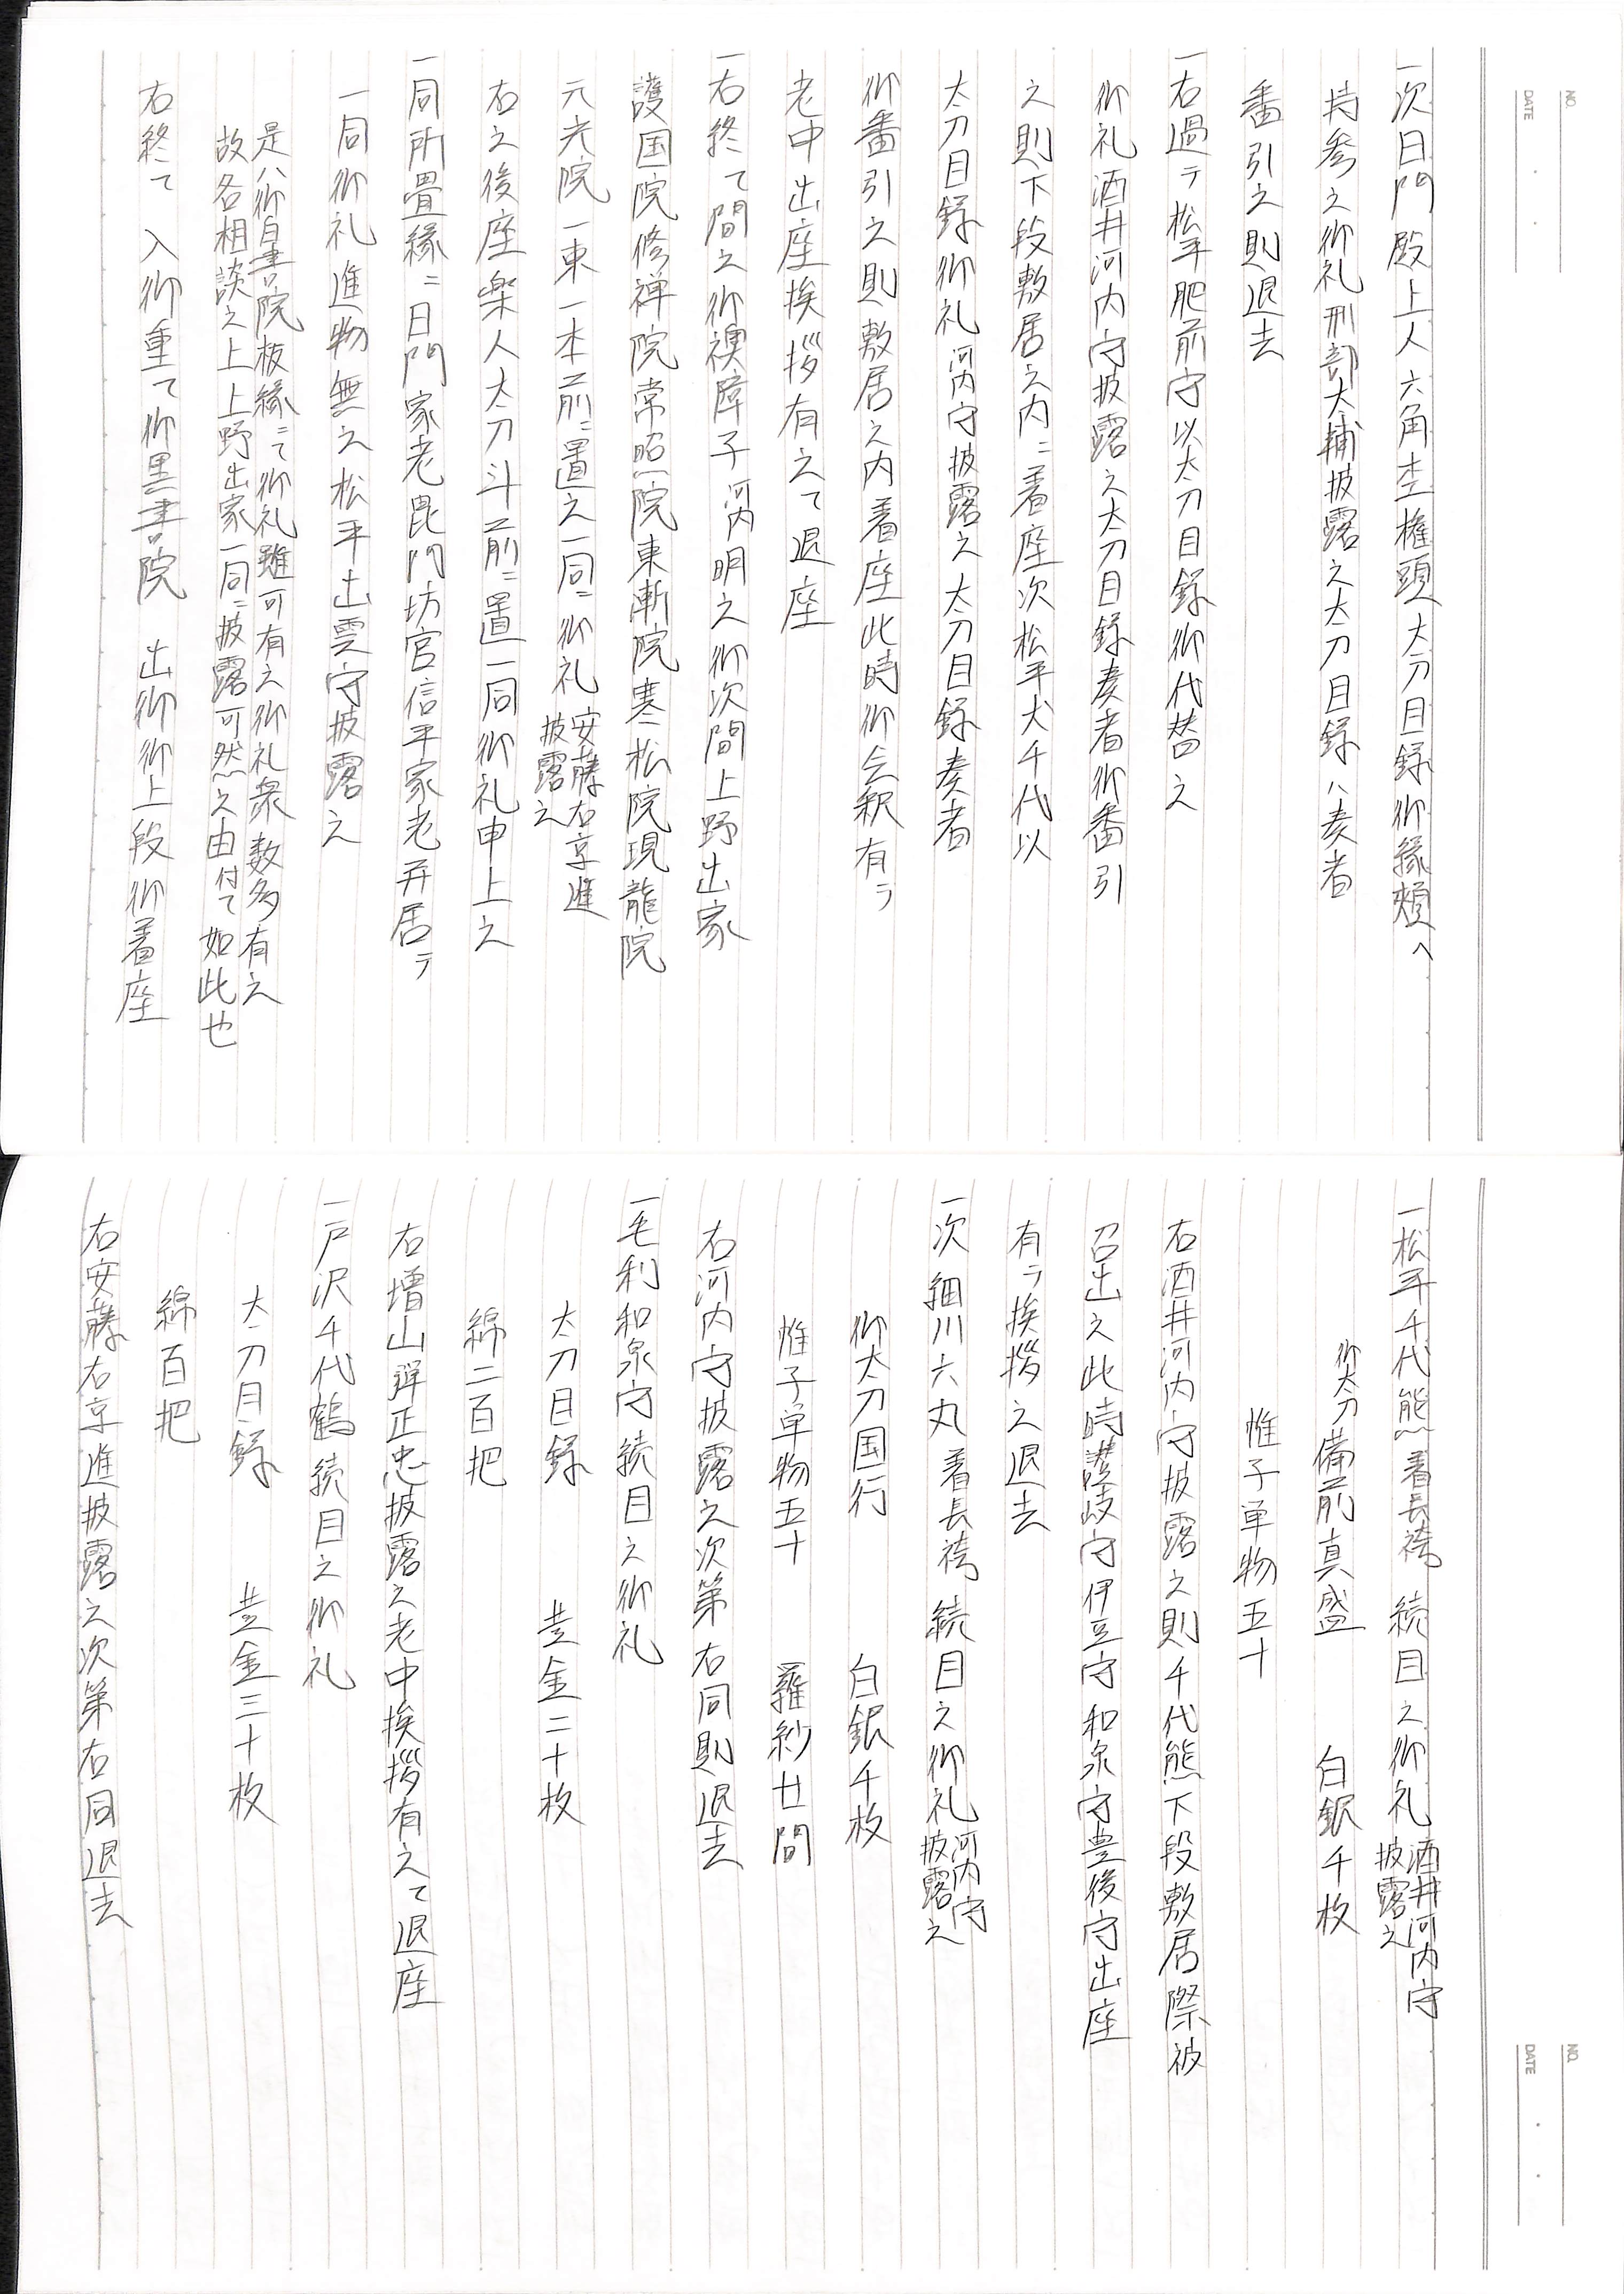 一次日門殿上人六角杢権頭太刀目録御縁頬へ
持参之御礼刑部大輔披露之太刀目録ハ奏者
番引之則退去
一右過テ松平肥前守以太刀目録御代替之
御礼酒井河内守披露之太刀目録奏者御番引
之則下段敷居之内ニ着座次松平犬千代以
太刀目録御礼河内守披露之太刀目録奏者
御番引之則敷居之内着座此時御会釈有テ
老中出座挨拶有之て退座
一右終て間之御襖障子河内明之御次間上野出家
護国院修禅院常照院東漸院寒松院現龍院
元光院一束一本前ニ置之一同ニ御礼安藤右京進
披露之
右之後座楽人太刀斗前ニ置一同御礼申上之
一同所畳縁ニ日門家老毘門坊官信平家老并居テ
一同御礼進物無之松平出雲守披露之
是ハ御白書院板縁ニて御礼雖可有之御礼衆数多有之
故各相談之上上野出家一同ニ披露可然之由付て如此也
右終て 入御重て御黒書院 出御御上段御着座
NO.
DATE
一松平千代熊着長袴 続目之御礼酒井河内守
披露之
御太刀備前真盛 白銀千枚
惟子単物五十
右酒井河内守披露之則千代熊下段敷居際被
召出之此時讃岐守伊豆守和泉守豊後守出座
有テ挨拶之退去
一次細川六丸着長袴続目之御礼河内守
披露之
御太刀国行 白銀千枚
惟子単物五十 羅紗廿間
右河内守披露之次第右同則退去
一毛利和泉守続目之御礼
太刀目録 黄金二十枚
綿二百把
右増山弾正忠披露之老中挨拶有之て退座
一戸沢千代鶴続目之御礼
太刀目録 黄金三十枚
綿百把
右安藤右京進披露之次第右同退去
NO.
DATE